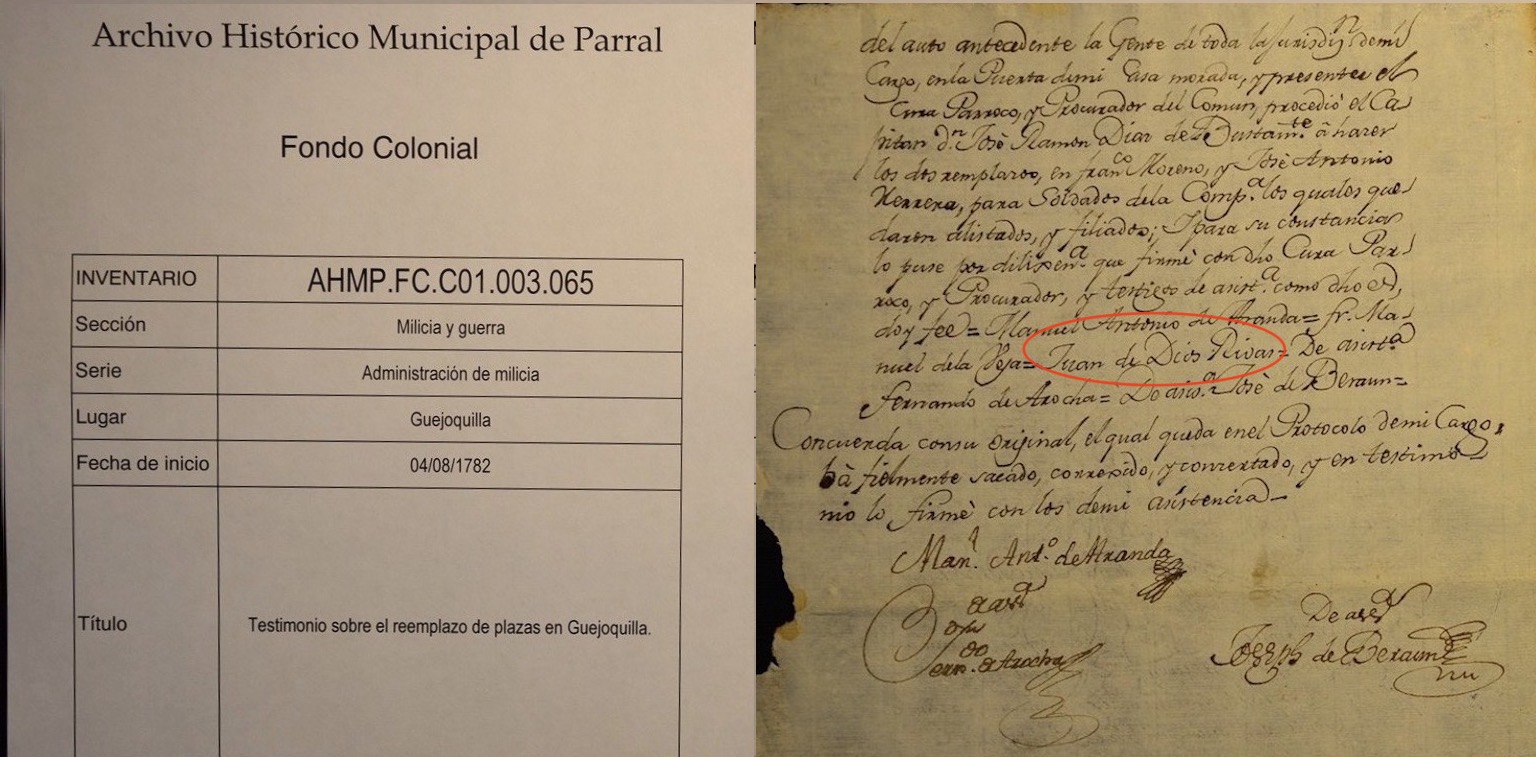 Archivo Histórico Municipal de Parral
Fondo Colonial
INVENTARIO AHMP.FC.C01.003.065
Sección Milicia y guerra
Serie Administración de milicia
Lugar Guejoquilla
Fecha de inicio 04/08/1782
Título Testimonio sobre el reemplazo de plazas en Guejoquilla.
del auto antecedente la Gente de toda la Jurisdiⁿ demi
Cargo, enla Puerta demi Casa morada, y presentes el
Cura Parroco, y Procurador del Comun, procediò el Ca
pitan dⁿ. Josè Ramon Diaz de Bustamᵗᵉ. â hazer
los dos remplazos, en franᶜᵒ Moreno, y Josè Antonio
Herrera, para Soldados dela Compᵃ. los quales que
daron alistados, y filiados; Ypara su constancia
lo puse por dilixenᵃ. que firmè con dho Cura Par
roco, y Procurador, y testigos de asistᵃ. como dho es,
doy fee= Manuel Antonio de Aranda= fr. Ma
nuel dela Vega= Juan de Dios Rivas= De asistᵃ
Fernando de Arocha= De asisᵃ. Josè de Beraun=
Concuerda consu orijinal, el qual queda enel Protocolo demi Cargo,
bà fielmente sacado, correxido, y conzertado, y en testimo
nio lo firmè con los demi asistencia
Manˡ. Antᵒ. de Aranda
Fern.ᵈᵒ de Arocha
De assᵃ
Joseph de Beraun